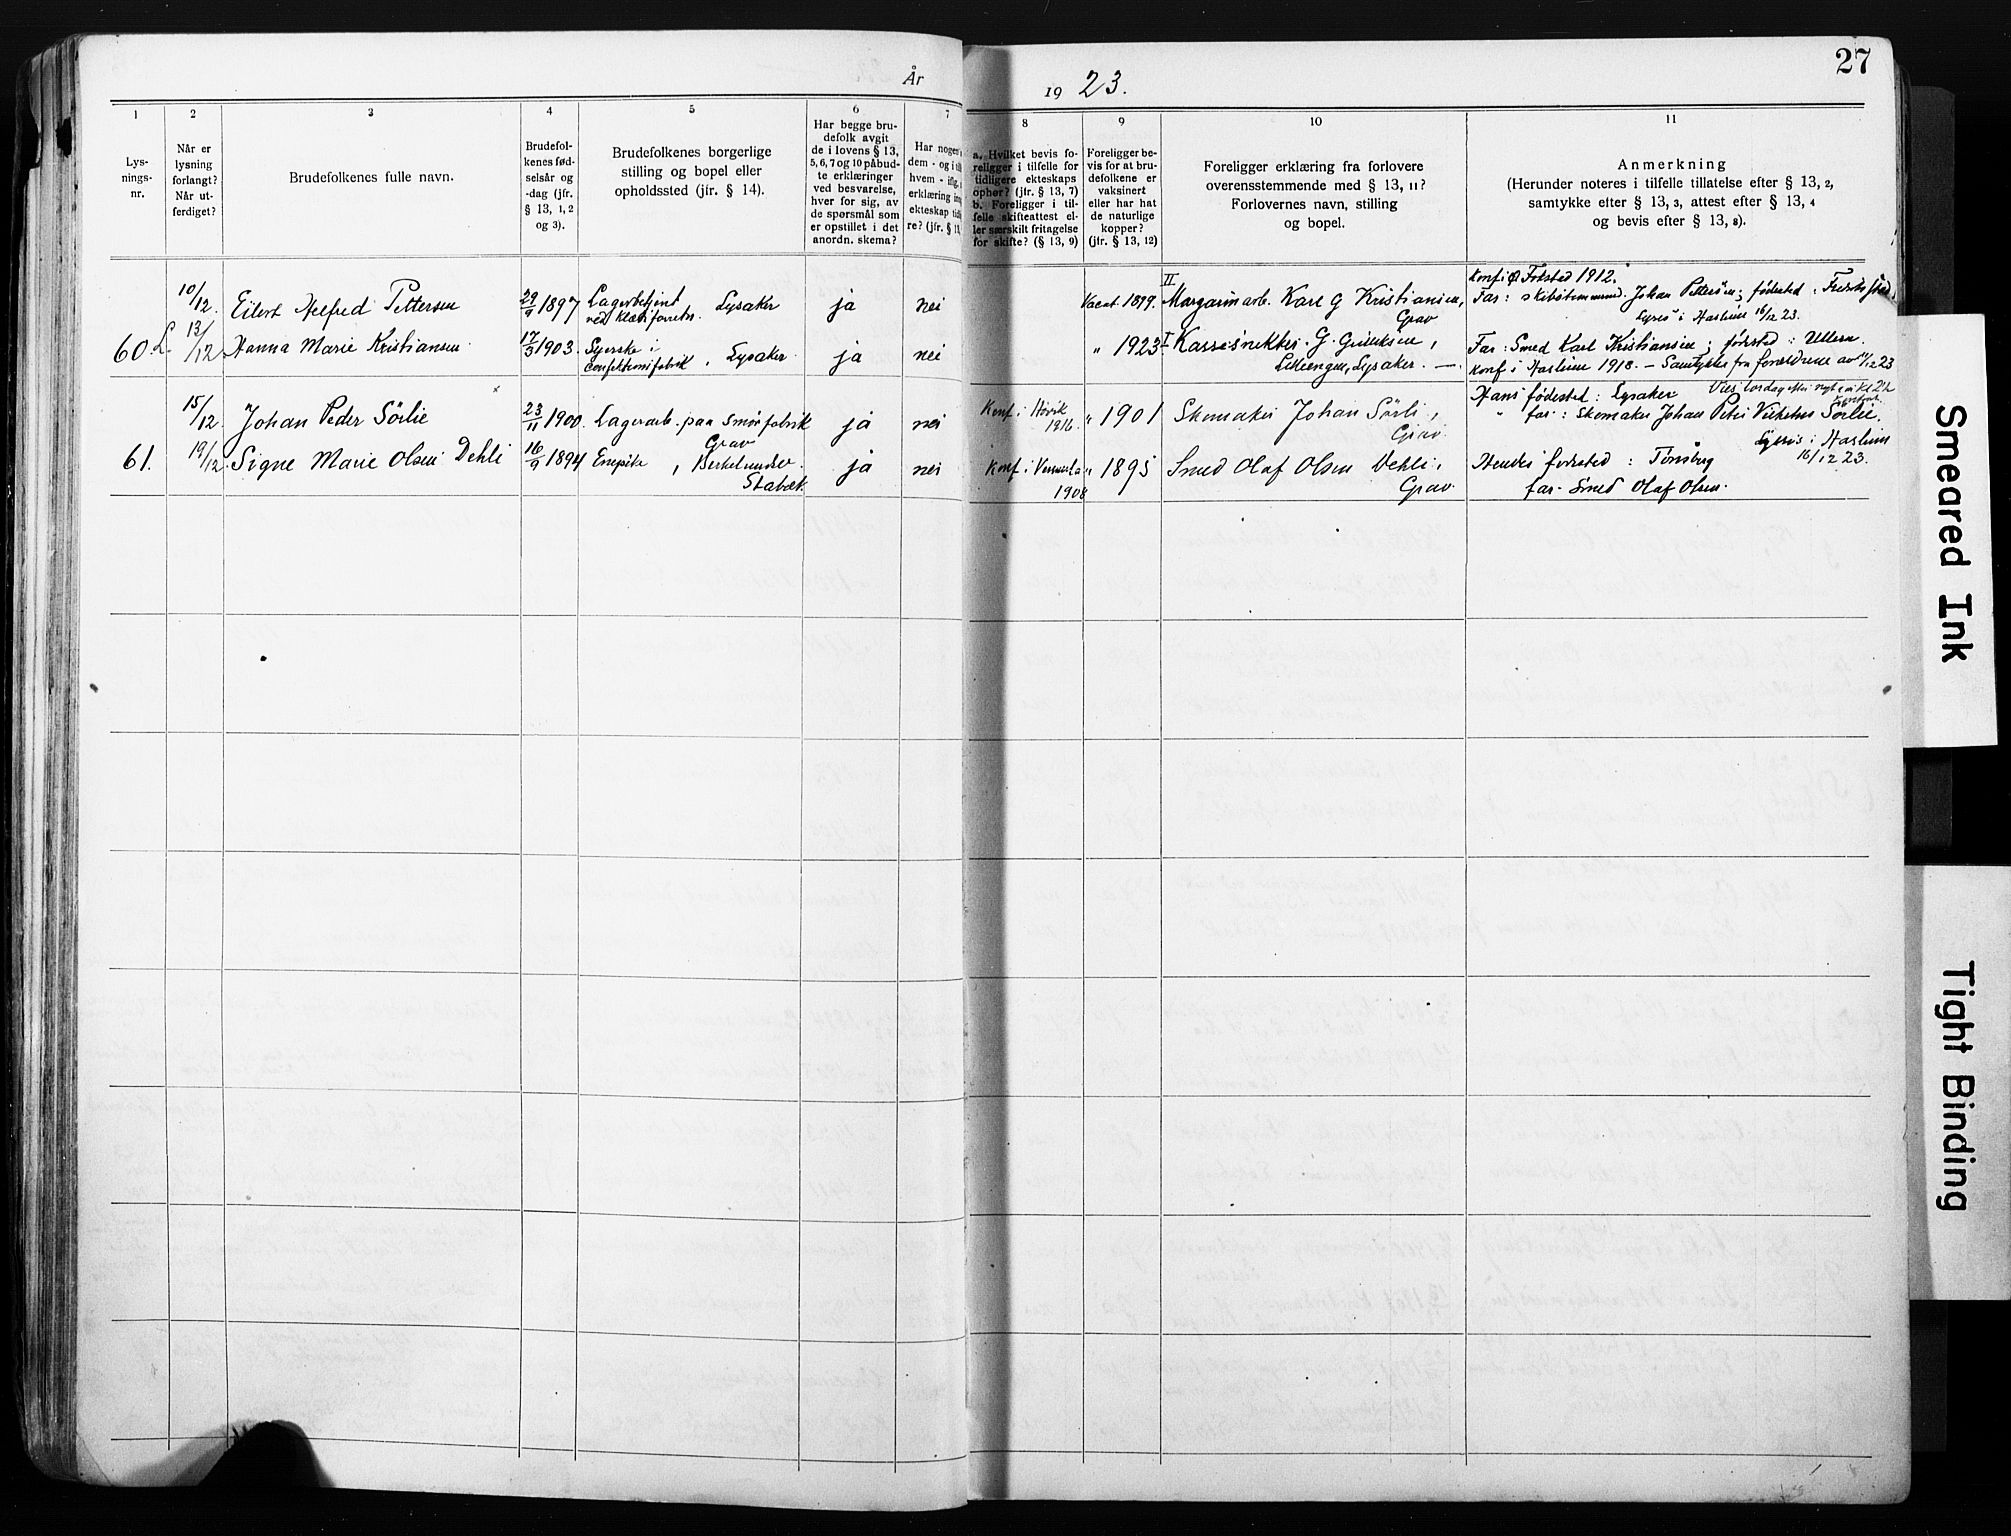 27
År 19 23.
1 2 3 4 5 6 7 8 9 10 11
Lys-
nings-
nr.
Når er
lysning
forlangt?
Når ut-
ferdiget?
Brudefolkenes fulle navn.
Brudefol-
kenes fød-
selsår og
-dag (jfr.
§ 13, 1, 2
og 3).
Brudefolkenes borgerlige
stilling og bopel eller
opholdssted (jfr. § 14).
Har begge bru-
defolk avgit
de i lovens § 13,
5, 6, 7 og 10 påbud-
te erklæringer
ved besvarelse,
hver for sig, av
de spørsmål som
er opstillet i det
anordn. skema?
Har nogen
dem - og i
hvem - iflg.
erklæring
ekteskap
re? (jfr. §
a. Hvilket bevis fo-
religger i tilfelle for
tidligere ekteskaps
ophør? (jfr. § 13, 7)
b. Foreligger i til-
felle skifteattest el-
ler særskilt fritagelse
for skifte? (§ 13, 9)
Foreligger be-
vis for at bru-
defolkene er
vaksinert
eller har hat
de naturlige
kopper?
(jfr. § 13, 12)
Foreligger erklæring fra forlovere
overensstemmende med § 13, 11?
Forlovernes navn, stilling
og bopel.
Anmerkning
(Herunder noteres i tilfelle tillatelse efter § 13, 2,
samtykke efter § 13, 3, attest efter § 13, 4
og bevis efter § 13, 8).
10/12. Eilert Alfred Pettersen 29/9 1897 Lagerbetjent Lysaker ja nei Vacat. 1899. II Margarinarb. Karl G Kristiansen, Grav
Konf i Fr.stad 1912.
Far: Johan Pettersen; fødested: Fredriksstad
Lyses i Haslum 16/12 23.
60. L. 13/12 Hanna Marie Kristiansen 17/3 1903. Syerske i Confektionsfabrik, Lysaker. ja nei " 1923 I Kassesnekker G. , Lilleengen, Lysaker. —
Far: Smed Karl Kristiansen; fødested: Ullern.
Konf i Haslum 1918. — Samtykke fra forældrene av 11/12 23
15/12 Johan Peder Sörlie 23/11 1900. Lagerarb. paa Smörfabrik Grav ja nei Konf. i Høvik 1916. " 1901 Skomaker Johan Sörli, Grav.
Hans fødested: Lysaker
" far: Skomaker Johan Peter Vilhelm Sörlie.
Lyses i Haslum
16/12 23.
61. 19/12. Signe Marie Olsen Dehli 16/9 1894 Enepike, Stabæk. ja nei Konf i 1908 " 1895 Smed Olaf Olsen Dehli, Grav.
Hendes fødested: Tönsberg
far: Smed Olaf Olsen.
Smeared Ink
Tight Binding